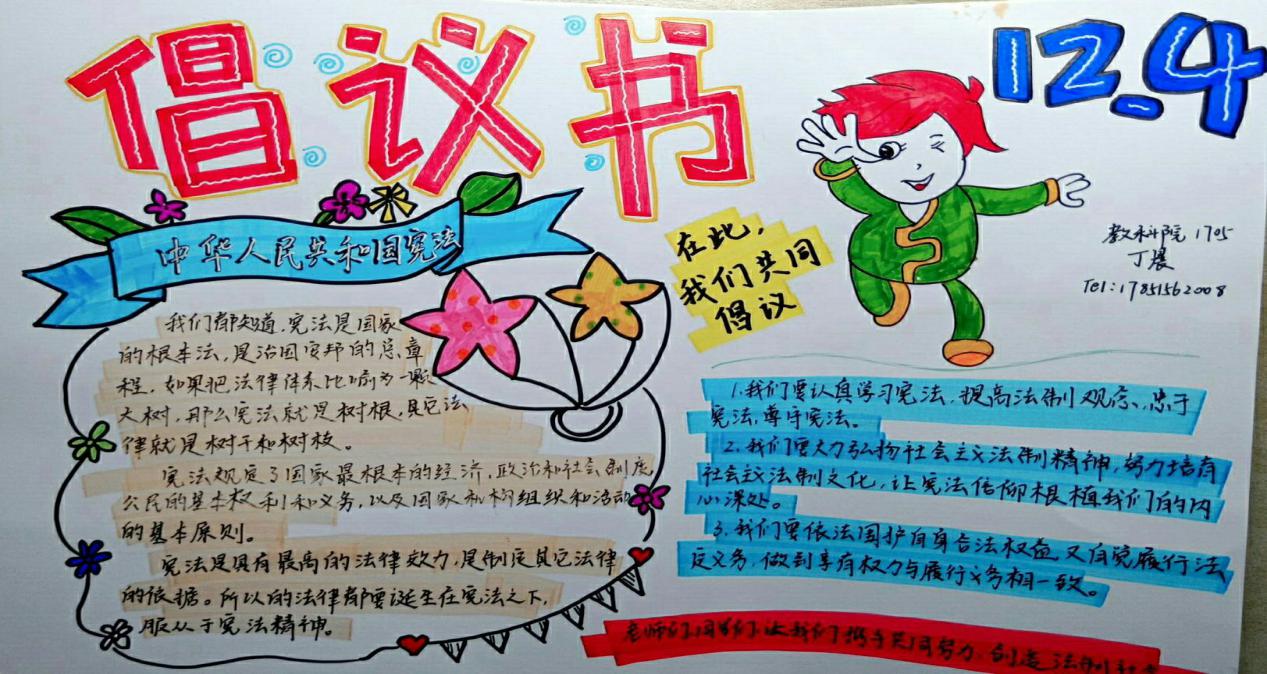 倡议书
12.4
中华人民共和国宪法
我们都知道,宪法是国家
的根本法,是治国安邦的总章
程,如果把法律体系比喻为一颗
大树,那么宪法就是树根,具它法
律就是树干和树枝。
宪法规定了国家最根本的经济,政治和社会制度,
公民的基本权利和义务,以及国家机构组织和活动
的基本原则。
宪法是具有最高的法律效力,是制定其它法律
的依据。所以的法律都要诞生在宪法之下,
服从于宪法精神。
在此,
我们共同
倡议
教科院 1705
丁晨
Tel:17851562008
1.我们要认真学习宪法,提高法制观念,忠于
宪法,尊守宪法。
2.我们要大力弘扬社会主义法制精神,努力培育
社会主义法制文化,让宪法信仰根植我们的内
心深处。
3.我们要依法围护自身合法权益,又自觉履行法
定义务,做到享有权力与履行义务相一致。
老师们,同学们,让我们携手共同努力,创造法制社